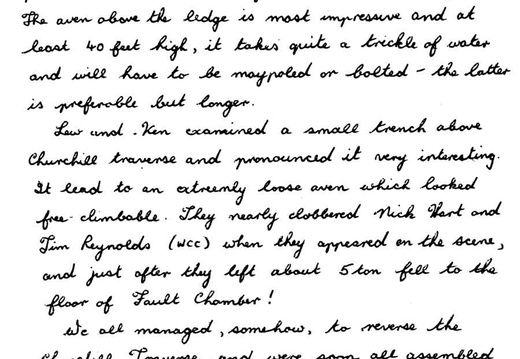 The aven above the ledge is most impressive and at
least 40 feet high, it takes quite a trickle of water
and will have to be maypoled or bolted - the latter
is preferable but longer.
Lew and Ken examined a small trench above
Churchill traverse and pronounced it very interesting.
It lead to an extreemly loose aven which looked
free-climbable. They nearly clobbered Nick Hart and
Tim Reynolds (WCC) when they appeared on the scene,
and just after they left about 5 ton fell to the
floor of Fault Chamber!
We all managed, somehow, to reverse the
Churchill Traverse and were soon all assembled